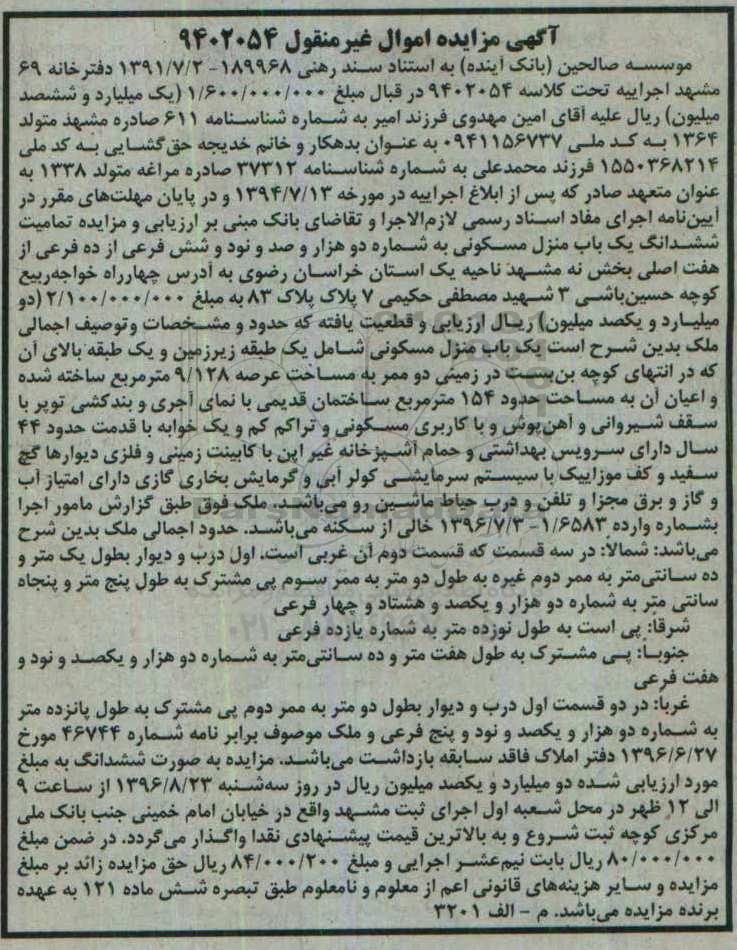 آگهی مزایده اموال غیرمنقول ۹۴۰۲۰۵۴
موسسه صالحین (بانک آینده) به استناد سند رهنی ۱۸۹۹۶۸- ۱۳۹۱/۷/۲ دفترخانه ۶۹
مشهد اجراییه تحت کلاسه ۹۴۰۲۰۵۴ در قبال مبلغ ۱/۶۰۰/۰۰۰/۰۰۰ (یک میلیارد و ششصد
میلیون) ریال علیه آقای امین مهدوی فرزند امیر به شماره شناسنامه ۶۱۱ صادره مشهد متولد
۱۳۶۴ به کد ملی ۰۹۴۱۱۵۶۷۳۷ به عنوان بدهکار و خانم خدیجه حق‌گشایی به کد ملی
۱۵۵۰۳۶۸۲۱۴ فرزند محمدعلی به شماره شناسنامه ۳۷۳۱۲ صادره مراغه متولد ۱۳۳۸ به
عنوان متعهد صادر که پس از ابلاغ اجراییه در مورخه ۱۳۹۴/۷/۱۳ و در پایان مهلت‌های مقرر در
آیین‌نامه اجرای مفاد اسناد رسمی لازم‌الاجرا و تقاضای بانک مبنی بر ارزیابی و مزایده تمامیت
ششدانگ یک باب منزل مسکونی به شماره دو هزار و صد و نود و شش فرعی از ده فرعی از
هفت اصلی بخش نه مشهد ناحیه یک استان خراسان رضوی به آدرس چهارراه خواجه‌ربیع
کوچه حسین‌باشی ۳ شهید مصطفی حکیمی ۷ پلاک پلاک ۸۳ به مبلغ ۲/۱۰۰/۰۰۰/۰۰۰ (دو
میلیارد و یکصد میلیون) ریال ارزیابی و قطعیت یافته که حدود و مشخصات وتوصیف اجمالی
ملک بدین شرح است یک باب منزل مسکونی شامل یک طبقه زیرزمین و یک طبقه بالای آن
که در انتهای کوچه بن‌بست در زمینی دو ممر به مساحت عرصه ۹/۱۲۸ مترمربع ساخته شده
و اعیان آن به مساحت حدود ۱۵۴ مترمربع ساختمان قدیمی با نمای آجری و بندکشی توپر با
سقف شیروانی و آهن‌پوش و با کاربری مسکونی و تراکم کم و یک خوابه با قدمت حدود ۴۴
سال دارای سرویس بهداشتی و حمام آشپزخانه غیر اپن با کابینت زمینی و فلزی دیوارها گچ
سفید و کف موزاییک با سیستم سرمایشی کولر آبی و گرمایش بخاری گازی دارای امتیاز آب
و گاز و برق مجزا و تلفن و درب حیاط ماشین رو می‌باشد. ملک فوق طبق گزارش مامور اجرا
بشماره وارده ۱/۶۵۸۳- ۱۳۹۶/۷/۳ خالی از سکنه می‌باشد. حدود اجمالی ملک بدین شرح
می‌باشد: شمالا: در سه قسمت که قسمت دوم آن غربی است. اول درب و دیوار بطول یک متر و
ده سانتی‌متر به ممر دوم غیره به طول دو متر به ممر سوم پی مشترک به طول پنج متر و پنجاه
سانتی متر به شماره دو هزار و یکصد و هشتاد و چهار فرعی
شرقا: پی است به طول نوزده متر به شماره یازده فرعی
جنوبا: پی مشترک به طول هفت متر و ده سانتی‌متر به شماره دو هزار و یکصد و نود و
هفت فرعی
غربا: در دو قسمت اول درب و دیوار بطول دو متر به ممر دوم پی مشترک به طول پانزده متر
به شماره دو هزار و یکصد و نود و پنج فرعی و ملک موصوف برابر نامه شماره ۴۶۷۴۴ مورخ
۱۳۹۶/۶/۲۷ دفتر املاک فاقد سابقه بازداشت می‌باشد. مزایده به صورت ششدانگ به مبلغ
مورد ارزیابی شده دو میلیارد و یکصد میلیون ریال در روز سه‌شنبه ۱۳۹۶/۸/۲۳ از ساعت ۹
الی ۱۲ ظهر در محل شعبه اول اجرای ثبت مشهد واقع در خیابان امام خمینی جنب بانک ملی
مرکزی کوچه ثبت شروع و به بالاترین قیمت پیشنهادی نقدا واگذار می‌گردد. در ضمن مبلغ
۸۰/۰۰۰/۰۰۰ ریال بابت نیم‌عشر اجرایی و مبلغ ۸۴/۰۰۰/۲۰۰ ریال حق مزایده زائد بر مبلغ
مزایده و سایر هزینه‌های قانونی اعم از معلوم و نامعلوم طبق تبصره شش ماده ۱۲۱ به عهده
برنده مزایده می‌باشد. م - الف ۳۲۰۱